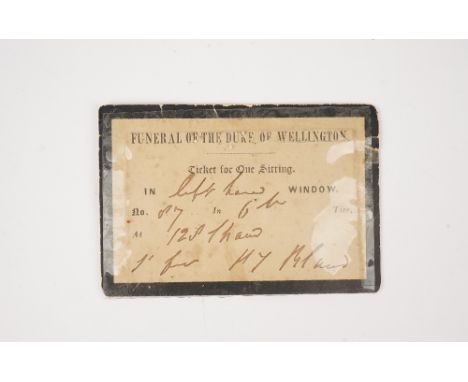 FUNERAL OF THE DUKE OF WELLINGTON
Ticket for One Sitting.
IN left hand WINDOW.
No. 87 In 6th Tier,
At 128 Strand